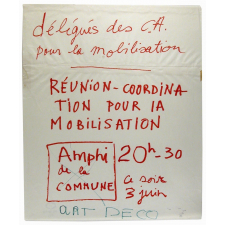 délégués des C.A.
pour la mobilisation
RÉUNION-COORDINA
TION POUR lA
MOBILISATION
Amphi
de la
COMMUNE
20h-30
ce soir
3 juin
ART DECO